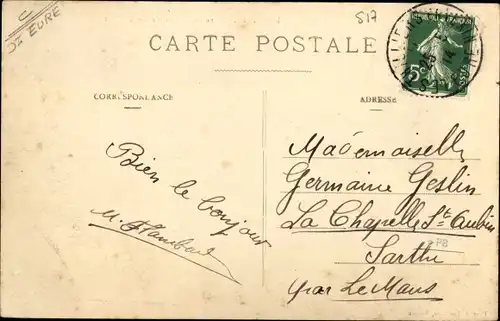 C
Dt EURE
517
CARTE POSTALE
5c
CORRESPONDANCE
ADRESSE
Bien le bonjour
Mademoiselle
Germaine Geslin
La Chapelle St Aubin
Sarthe
par Le Mans